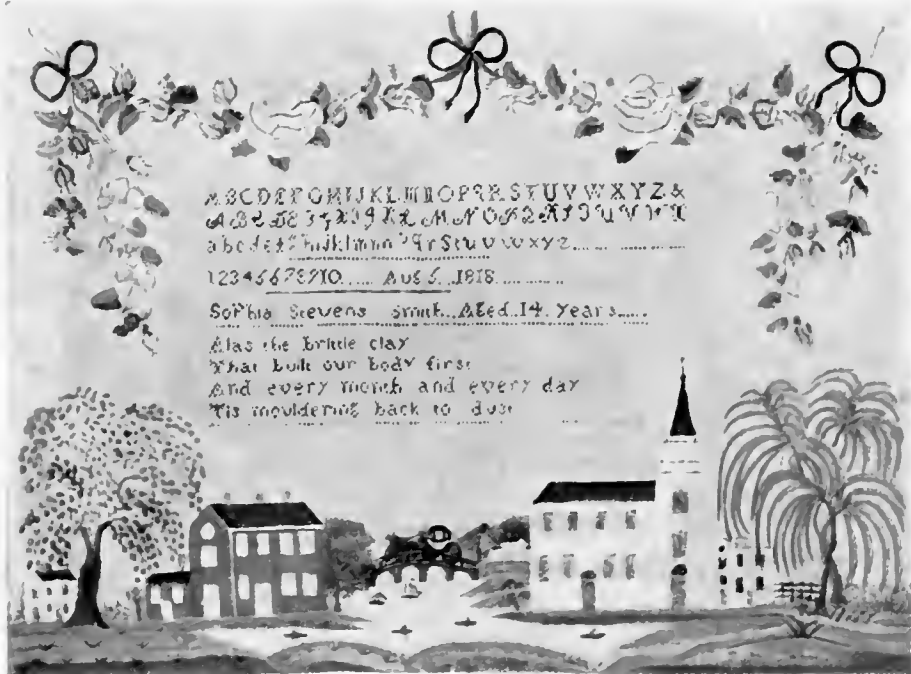 ABCDEFGHIJKLMNOPQRSTUVWXYZ&
ABCDEFGHIJKLMNOPQRSTUVWX
abcdefghijklmnopqrstuvwxyz
12345678910 Aug 5 1818
Sophia Stevens Smith Aged 14 Years
Alas the brittle clay
That built our body first
And every month and every day
Tis mouldering back to dust